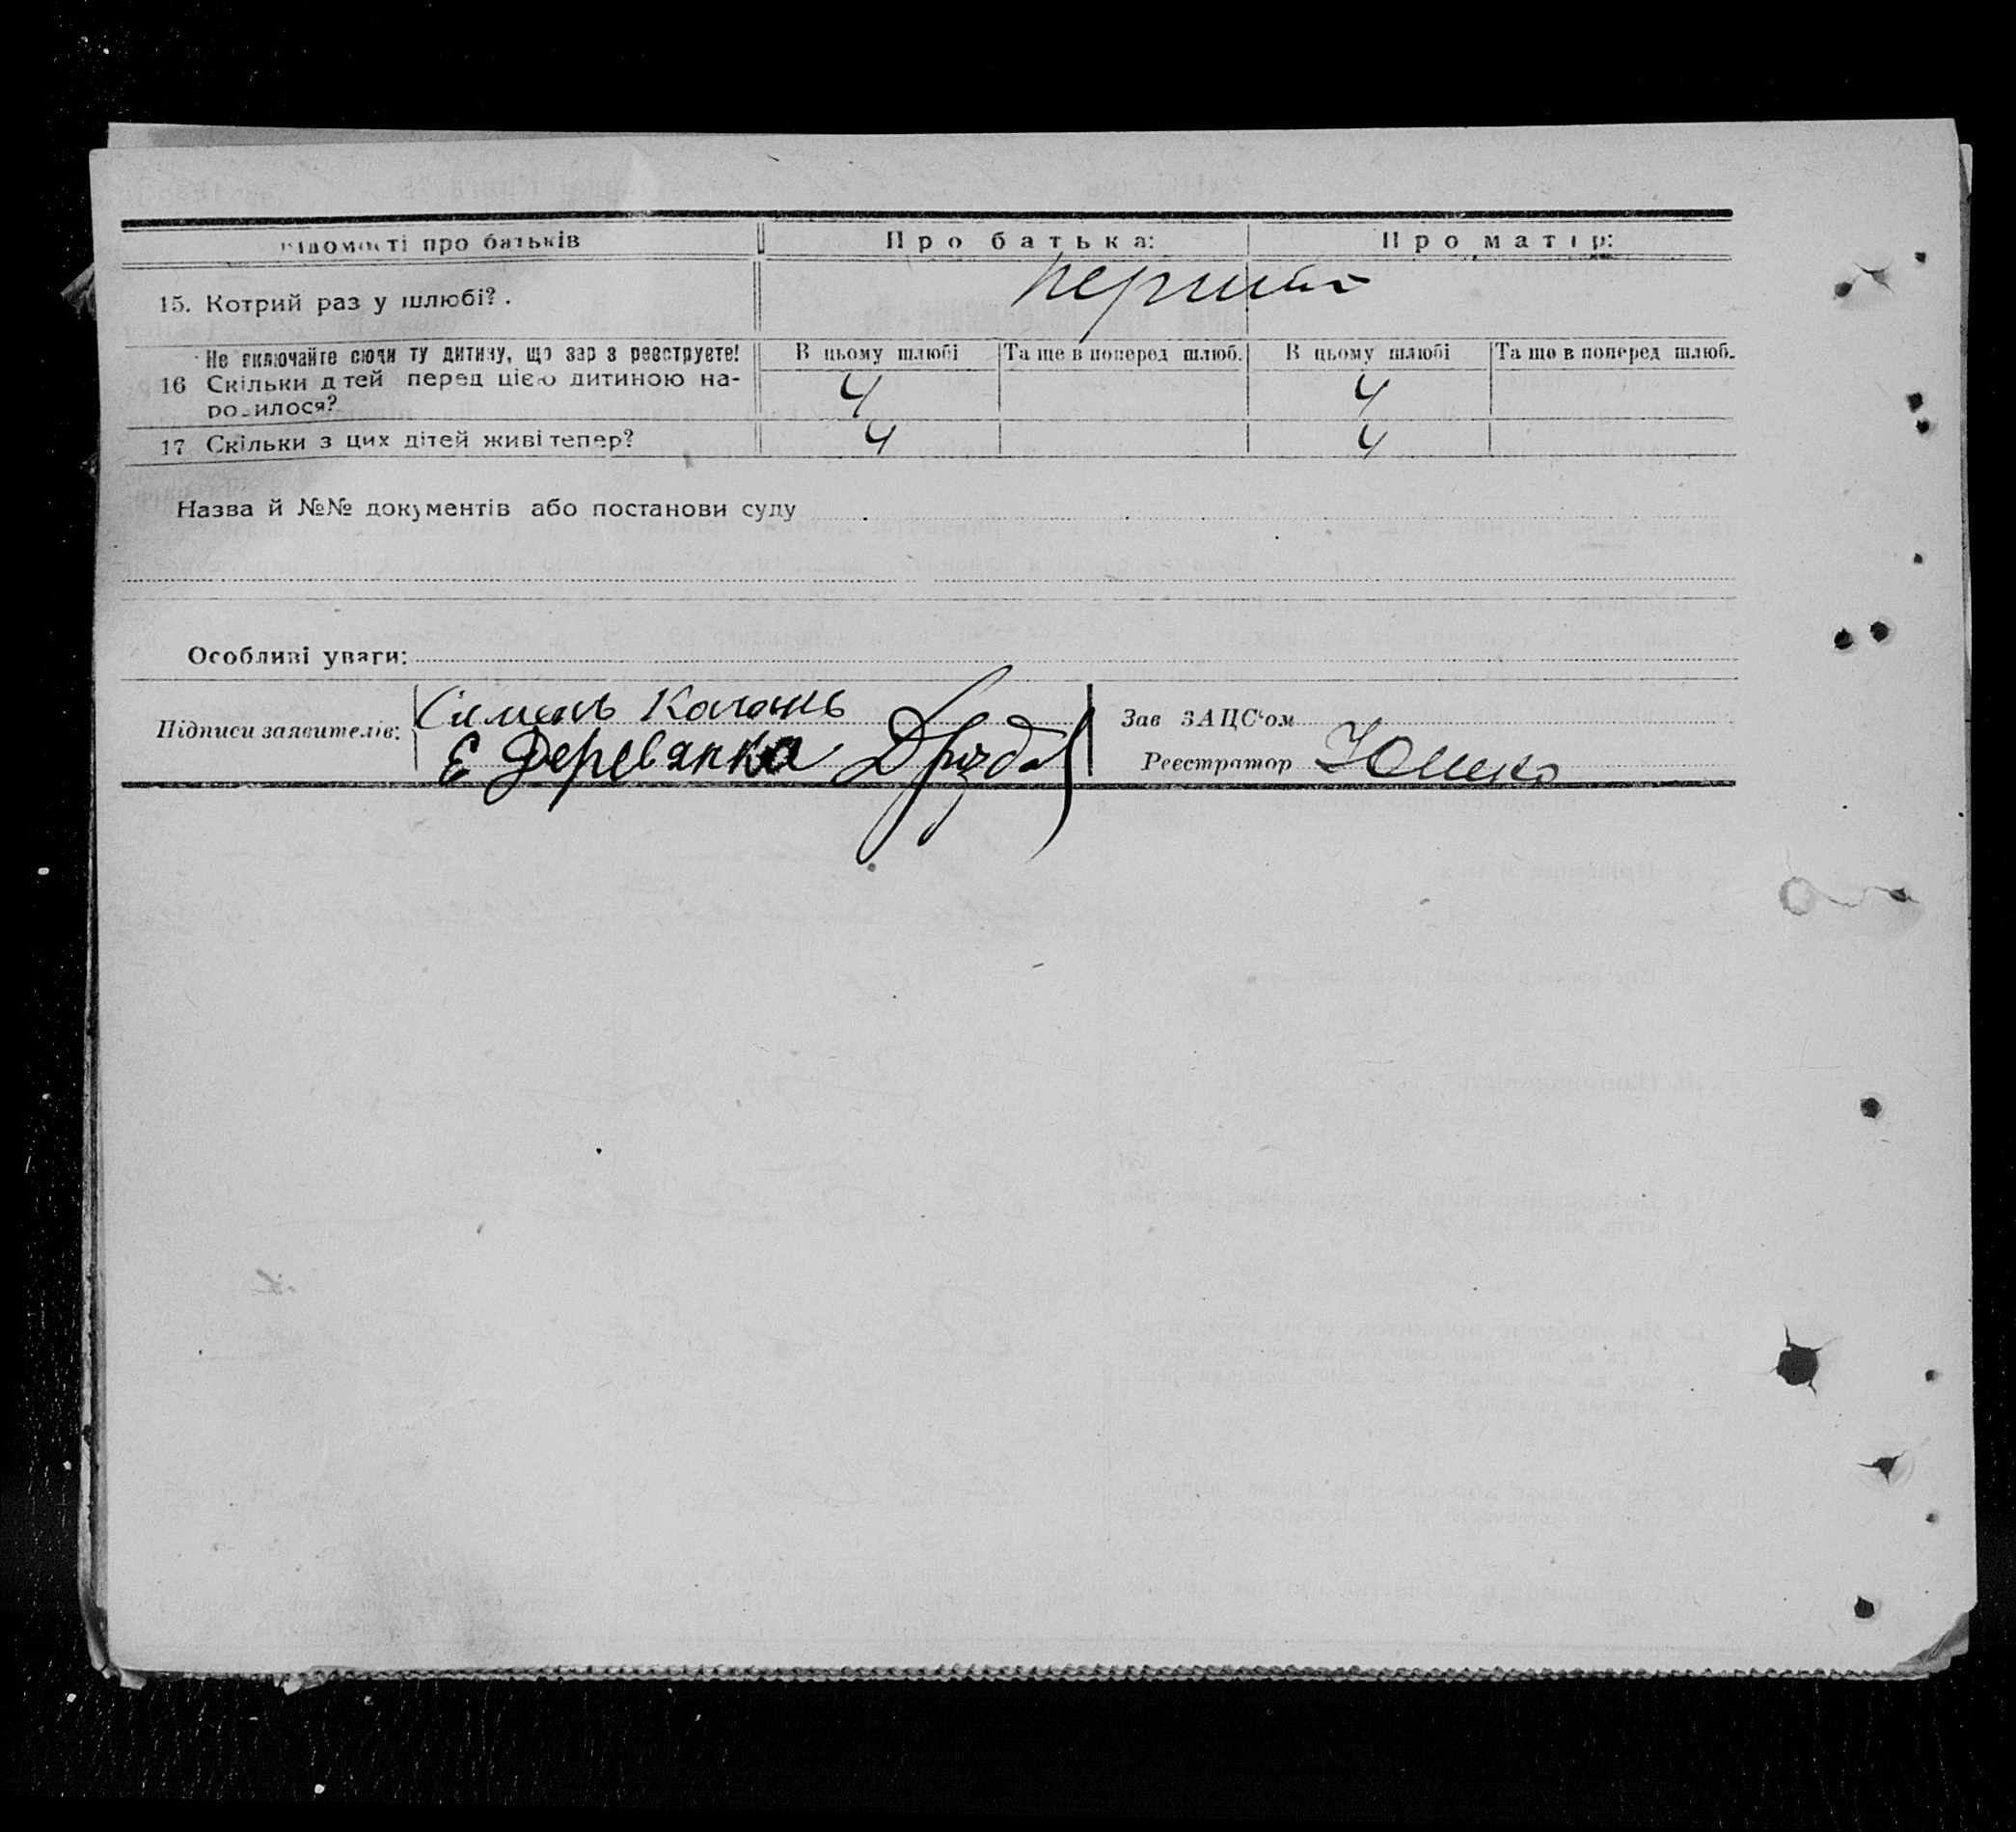 Відомості про батьків Про батька: Про матір:
15. Котрий раз у шлюбі?. перший
Не включайте сюди ту дитину, що зар з реєструєте! В цьому шлюбі Та ще в поперед шлюб. В цьому шлюбі Та що в поперед шлюб.
16 Скільки д тей перед цією дитиною на- 4 4
родилося?
17 Скільки з цих дітей живі тепер? 4 4
Назва й №№ документів або постанови суду
Особливі уваги:
Підписи заявителів: Зав ЗАЦС‘ом
Е Деревянко Дрозд Реєстратор Юшко